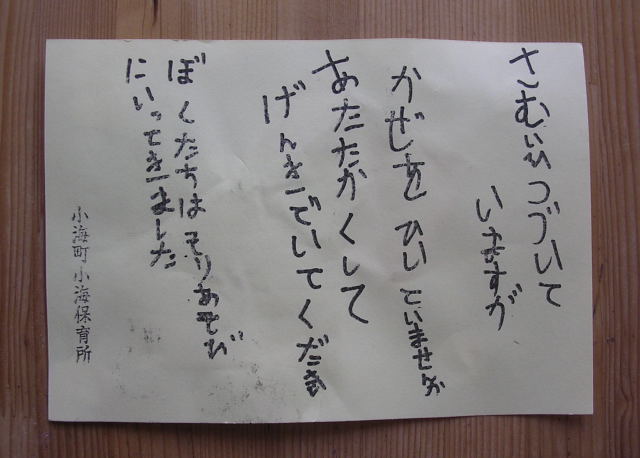 さむいひつづいて
いますが
かぜをひいていませんか
あたたかくして
げんきでいてくださ
ぼくたちはそりあそび
にいってきました
小海町小海保育所